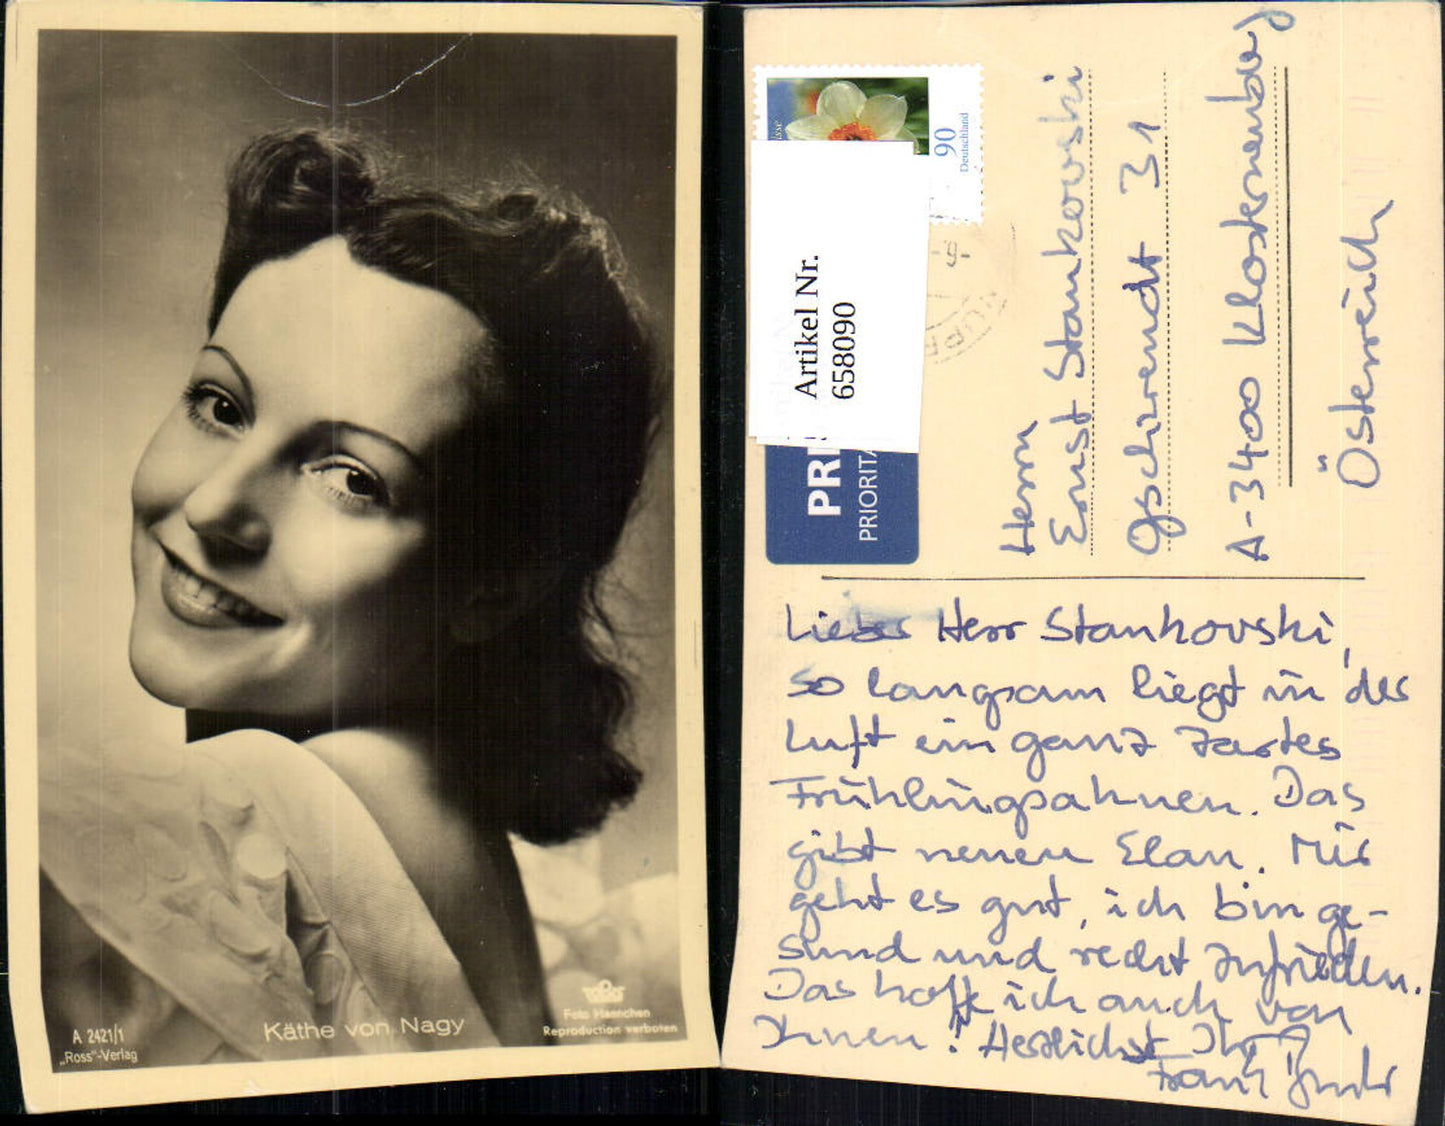 A 2421/1
„Ross"-Verlag
Käthe von Nagy
Foto Haenchen
Reproduction verboten
90
Deutschland
Artikel Nr.
658090
PRI
PRIORITA
Herrn
Ernst Stankovski
Gschirrendt 31
A-3400 Klosterneuburg
Österreich
Lieber Herr Stankovski,
so langsam liegt in der
Luft ein ganz zartes
Frühlingsahnen. Das
gibt neuen Elan. Mir
geht es gut, ich bin ge-
sund und recht zufrieden.
Das hoffe ich auch von
Ihnen! Herzlichst Ihr
Frank